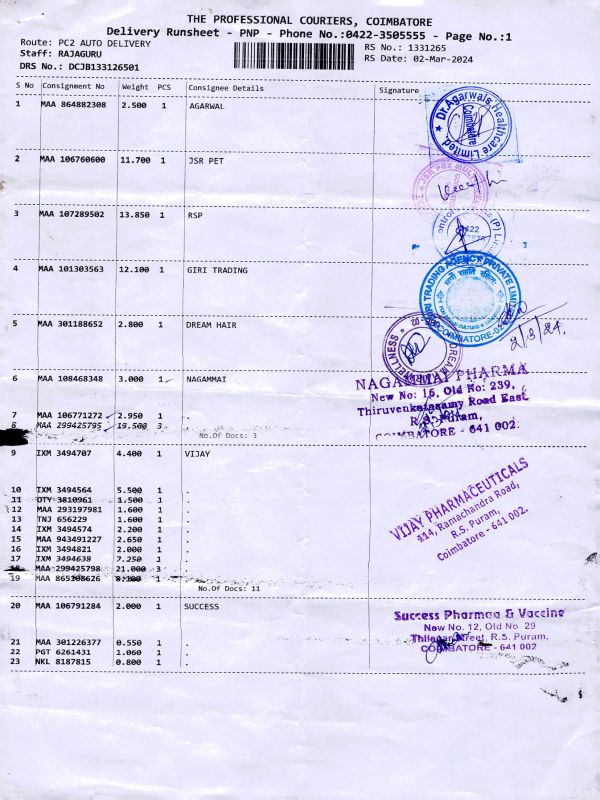 THE PROFESSIONAL COURIERS, COIMBATORE
Delivery Runsheet - PNP - Phone No.:0422-3505555 - Page No.:1
Route: PC2 AUTO DELIVERY RS No.: 1331265
Staff: RAJAGURU RS Date: 02-Mar-2024
DRS No.: DCJB133126501
S No Consignment No Weight PCS Consignee Details Signature
1 MAA 864882308 2.500 1 AGARWAL
Dr.Agarwals Healthcare Limited. Coimbatore
2 MAA 106760600 11.700 1 JSR PET
3 MAA 107289502 13.850 1 RSP
4 MAA 101303563 12.100 1 GIRI TRADING
GIRI TRADING AGENCY PRIVATE LIMITED COIMBATORE-02
5 MAA 301188652 2.800 1 DREAM HAIR
2/3/24.
6 MAA 108468348 3.000 1 NAGAMMAI
NAGAMMAI PHARMA
New No: 16, Old No: 239,
Thiruvenkatasamy Road East,
R.S. Puram,
COIMBATORE - 641 002.
7 MAA 106771272 2.950 1 .
8 MAA 299425795 19.500 3 .
No.Of Docs: 3
9 IXM 3494707 4.400 1 VIJAY
VIJAY PHARMACEUTICALS
114, Ramachandra Road,
R.S. Puram,
Coimbatore - 641 002.
10 IXM 3494564 5.500 1 .
11 OTY 3810961 1.500 1 .
12 MAA 293197981 1.600 1 .
13 TNJ 656229 1.600 1 .
14 IXM 3494574 2.200 1 .
15 MAA 943491227 2.650 1 .
16 IXM 3494821 2.000 1 .
17 IXM 3494638 7.250 1 .
18 MAA 299425798 21.000 3 .
19 MAA 865108626 8.100 1 .
No.Of Docs: 11
20 MAA 106791284 2.000 1 SUCCESS
Success Pharmaa & Vaccine
New No. 12, Old No. 29
Street, R.S. Puram,
COIMBATORE - 641 002
21 MAA 301226377 0.550 1 .
22 PGT 6261431 1.060 1 .
23 NKL 8187815 0.800 1 .